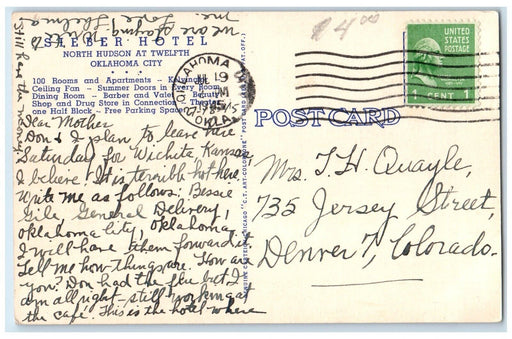 we are staying. Write to
me. Love, Thelma
Still have the
SIEBER HOTEL
NORTH HUDSON AT TWELFTH
OKLAHOMA CITY
100 Rooms and Apartments - Kitchenettes
Ceiling Fan - Summer Doors in Every Room
Dining Room - Barber and Valet - Beauty
Shop and Drug Store in Connection - Theater
one Half Block - Free Parking Space
Dear Mother
Don & I plan to leave here
Saturday for Wichita, Kansas
I believe. It is terrible hot here.
Write me as follows: Bessie
Gile, General Delivery,
Oklahoma City, Oklahoma.
I will have them forwarded.
Tell me how things are. How are
you? Don had the flu but I
am all right - still working at
the café. This is the hotel where
OKLAHOMA
JUL 19
PM
OKLA.
$4.00
UNITED
STATES
POSTAGE
1 CENT 1
POST CARD
Mrs. T. H. Quayle,
735 Jersey Street,
Denver 7, Colorado.